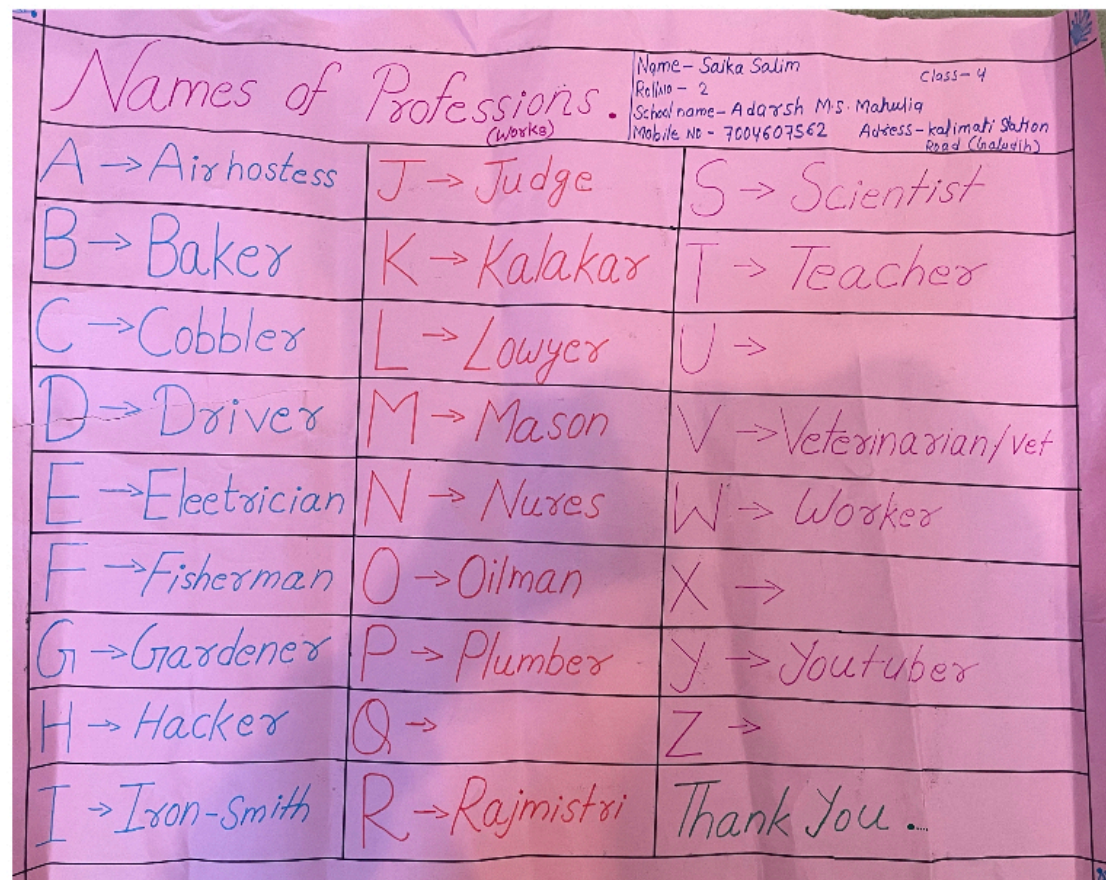 Names of Professions.
(Works)
Name- Saika Salim
Class- 4
RollNo - 2
School name- Adarsh M.S. Mahulia
Mobile No - 7004607562
Adress- kalimati Station
Road (Galudih)
A → Airhostess
B → Baker
C → Cobbler
D → Driver
E → Eleetrician
F → Fisherman
G → Gardener
H → Hacker
I → Iron-Smith
J → Judge
K → Kalakar
L → Lowyer
M → Mason
N → Nures
O → Oilman
P → Plumber
Q →
R → Rajmistri
S → Scientist
T → Teacher
U →
V → Veterinarian/vet
W → Worker
X →
Y → Youtuber
Z →
Thank You.